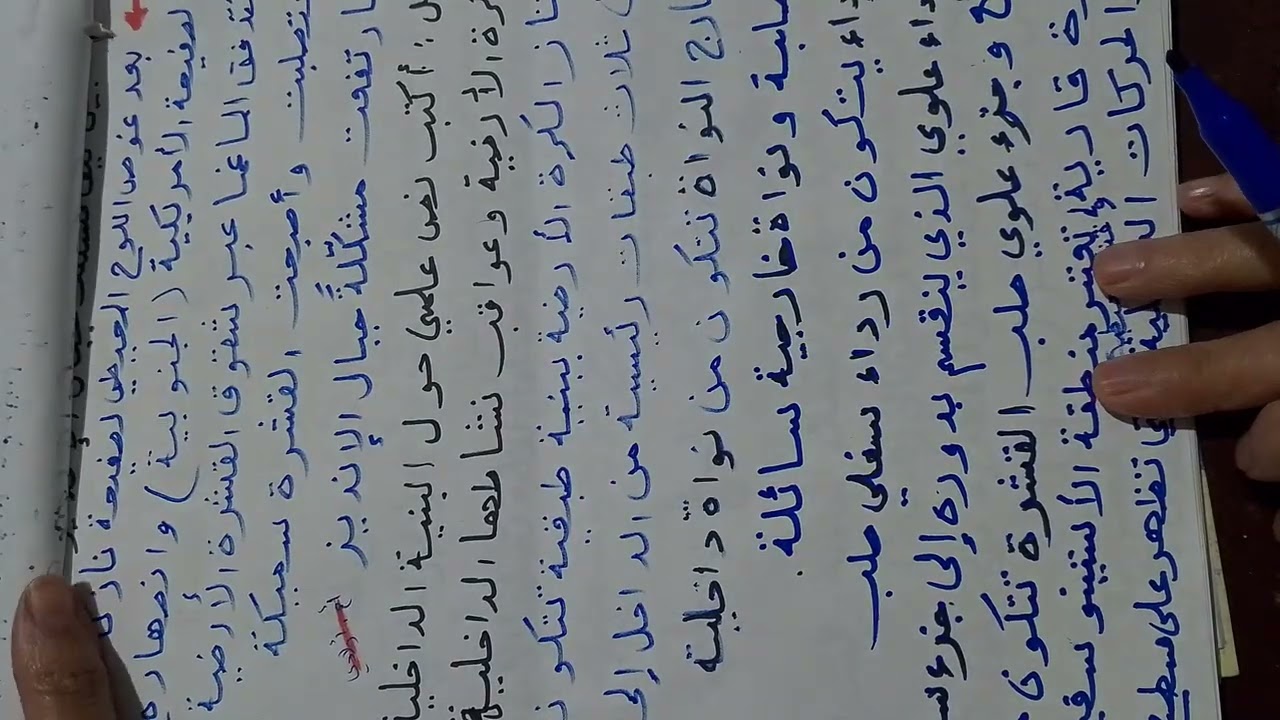 بعد غوص اللوح المحيطي لصفيحة نازكا
لصفيحة الأمريكية (الجنوبية) وانصهاره
تدفقا الماغما عبر شقوق القشرة الأرضية
تصلبت وأصبحت القشرة سميكة
ارتفعت مشكّلةً جبال الإنديز
أكتب نص علمي حول البنية الداخلية
رة الأرضية وعواقب نشاطها الداخلية
الكرة الأرضية ببنية طبقية تتكون
ثلاث طبقات رئيسية من الداخل إلى
ارج النواة تتكون من نواة داخلية
صلبة ونواة خارجية سائلة.
داء يتكون من رداء سفلي صلب
داء علوي الذي ينقسم بدوره إلى جزء
وجزء علوي صلب القشرة تتكون
قارية الأستينوسفير
الحركات تظهر على سطح